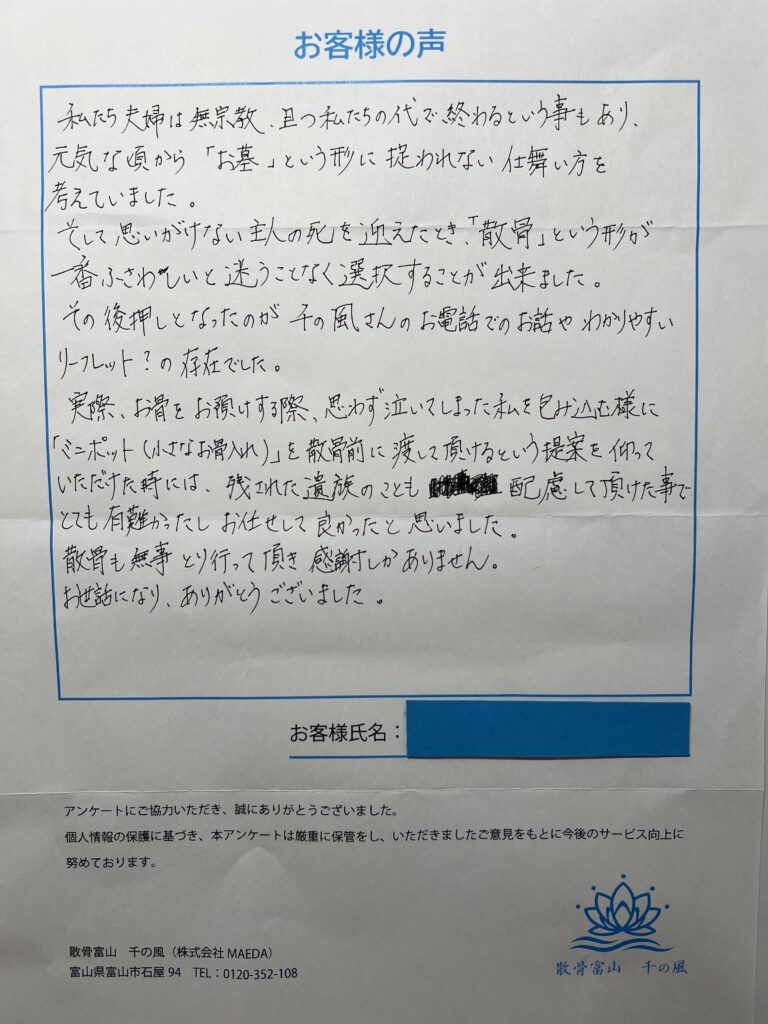 お客様の声
私たち夫婦は無宗教、且つ私たちの代で終わるという事もあり、
元気な頃から「お墓」という形に捉われない仕舞い方を
考えていました。
そして思いがけない主人の死を迎えたとき、「散骨」という形が
一番ふさわしいと迷うことなく選択することが出来ました。
その後押しとなったのが千の風さんのお電話でのお話やわかりやすい
リーフレット?の存在でした。
実際、お骨をお預けする際、思わず泣いてしまった私を包み込む様に
「ミニポット(小さなお骨入れ)」を散骨前に渡して頂けるという提案を仰って
いただけた時には、残された遺族のことも配慮して頂けた事で
とても有難かったしお任せして良かったと思いました。
散骨も無事とり行って頂き感謝しかありません。
お世話になり、ありがとうございました。
お客様氏名:
アンケートにご協力いただき、誠にありがとうございました。
個人情報の保護に基づき、本アンケートは厳重に保管をし、いただきましたご意見をもとに今後のサービス向上に
努めております。
散骨富山 千の風(株式会社 MAEDA)
富山県富山市石屋 94 TEL:0120-352-108
散骨富山 千の風